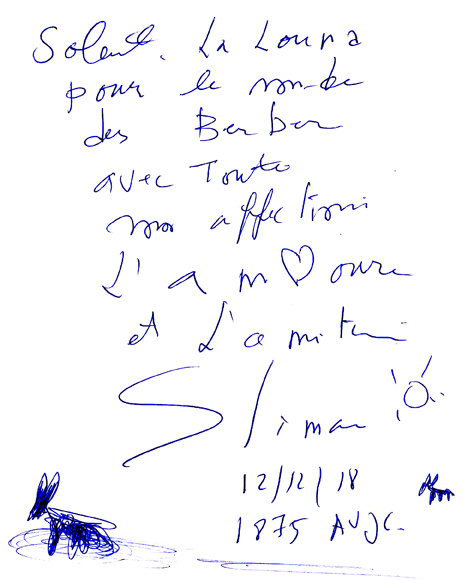 La Louna
pour le monde
des Berber
avec Toute
mon affection
L'am♡oure
et L'amitié
Sliman
12/12/18
1875 AVJC.